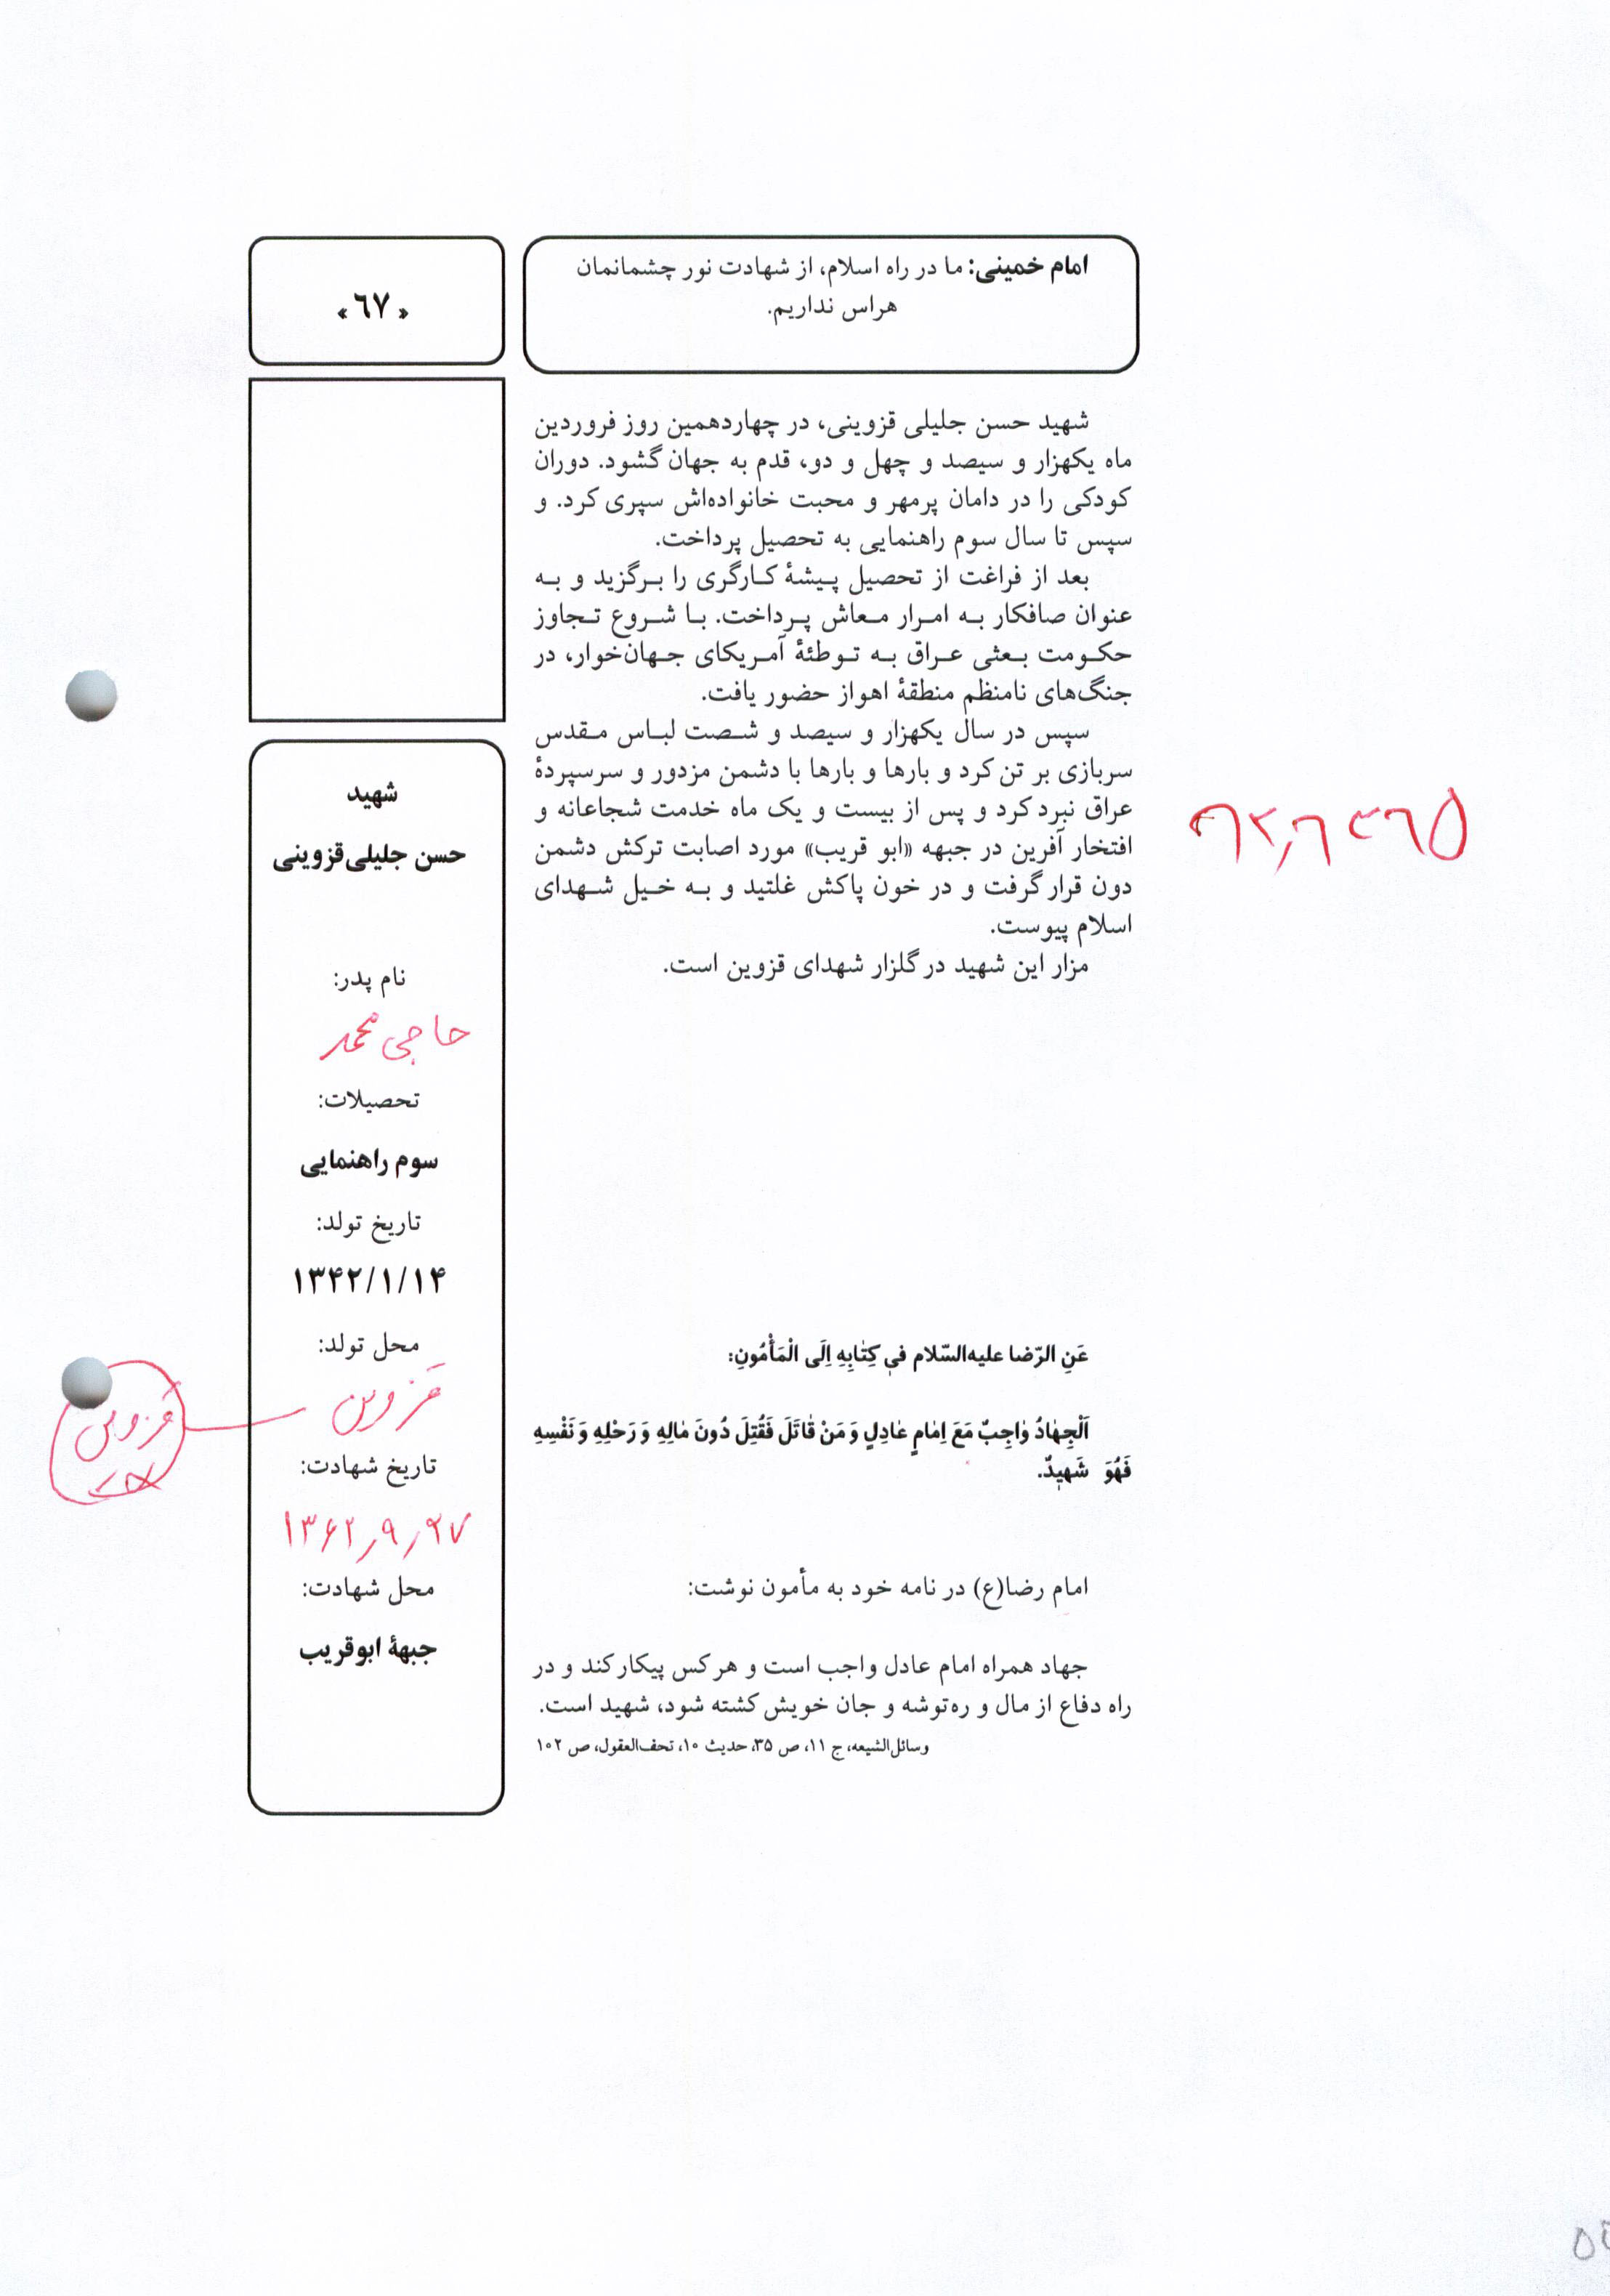 امام خمینی: ما در راه اسلام، از شهادت نور چشمانمان
هراس نداریم.
«٦٧»
شهید حسن جلیلی قزوینی، در چهاردهمین روز فروردین
ماه یکهزار و سیصد و چهل و دو، قدم به جهان گشود. دوران
کودکی را در دامان پرمهر و محبت خانواده‌اش سپری کرد. و
سپس تا سال سوم راهنمایی به تحصیل پرداخت.
بعد از فراغت از تحصیل پیشهٔ کارگری را برگزید و به
عنوان صافکار به امرار معاش پرداخت. با شروع تجاوز
حکومت بعثی عراق به توطئهٔ آمریکای جهان‌خوار، در
جنگ‌های نامنظم منطقهٔ اهواز حضور یافت.
سپس در سال یکهزار و سیصد و شصت لباس مقدس
سربازی بر تن کرد و بارها و بارها با دشمن مزدور و سرسپردهٔ
عراق نبرد کرد و پس از بیست و یک ماه خدمت شجاعانه و
افتخار آفرین در جبهه «ابو قریب» مورد اصابت ترکش دشمن
دون قرار گرفت و در خون پاکش غلتید و به خیل شهدای
اسلام پیوست.
مزار این شهید در گلزار شهدای قزوین است.
عَنِ الرّضا علیه‌السّلام في كِتٰابِهِ اِلَى الْمَأْمُونِ:
اَلْجِهٰادُ وٰاجِبٌ مَعَ اِمٰامٍ عٰادِلٍ وَ مَنْ قٰاتَلَ فَقُتِلَ دُونَ مٰالِهِ وَ رَحْلِهِ وَ نَفْسِهِ
فَهُوَ شَهيدٌ.
امام رضا(ع) در نامه خود به مأمون نوشت:
جهاد همراه امام عادل واجب است و هر کس پیکار کند و در
راه دفاع از مال و ره‌توشه و جان خویش کشته شود، شهید است.
وسائل‌الشیعه، ج ۱۱، ص ۳۵، حدیث ۱۰، تحف‌العقول، ص ۱۰۲
شهید
حسن جلیلی‌قزوینی
نام پدر:
حاجی محمد
تحصیلات:
سوم راهنمایی
تاریخ تولد:
۱۳۴۲/۱/۱۴
محل تولد:
قزوین
قزوین
تاریخ شهادت:
۱۳۶۲٫۹٫۲۷
محل شهادت:
جبههٔ ابوقریب